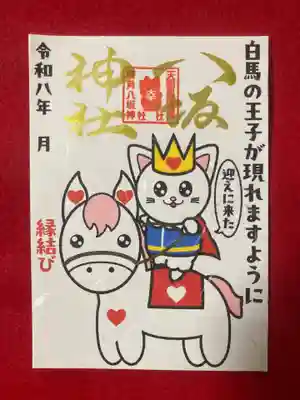 白馬の王子が現れますように
迎えに来た
八坂
神社
令和八年 月
縁結び